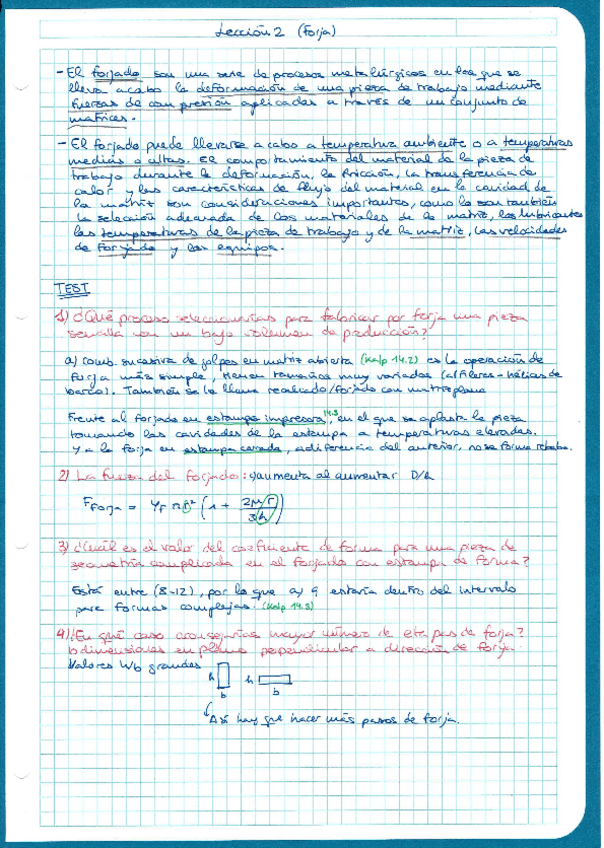 Lección 2 (Forja)
- El forjado son una serie de procesos metalúrgicos en los que se
lleva a cabo la deformación de una pieza de trabajo mediante
fuerzas de compresión aplicadas a través de un conjunto de
matrices.
- El forjado puede llevarse a cabo a temperatura ambiente o a temperaturas
medias o altas. El comportamiento del material de la pieza de
trabajo durante la deformación, la fricción, la transferencia de
calor y las características de flujo del material en la cavidad de
la matriz son consideraciones importantes, como lo son también
la selección adecuada de los materiales de la matriz, los lubricantes
las temperaturas de la pieza de trabajo y de la matriz, las velocidades
de forjado y los equipos.
TEST
1) ¿Qué proceso seleccionarías para fabricar por forja una pieza
sencilla con un bajo volumen de producción?
a) como sucesiva de golpes en matriz abierta (Kalp 14.2) es la operación de
forja más simple, tienen tamaños muy variados (alfileres - hélices de
barco). También se le llama recalcado/forjado con matriz plana
Frente al forjado en estampa impresora, 14.3 en el que se aplasta la pieza
tomando las cavidades de la estampa a temperaturas elevadas.
Y a la forja en estampa cerrada, a diferencia del anterior, no se forma rebaba.
2) La fuerza del forjado: aumenta al aumentar D/h
F forja = Yf π r² (1 + 2μr/3h)
3) ¿Cuál es el valor del coeficiente de forma para una pieza de
geometría complicada en el forjado con estampa de forma?
Está entre (8-12), por lo que a) 9 estaría dentro del intervalo
para formas complejas. (Kalp 14.3)
4) ¿En qué caso aconsejarías mayor número de etapas de forja?
b dimensiones en plano perpendicular a dirección de forja.
Valores h/b grandes
h h
b b
Así hay que hacer más pasos de forja.